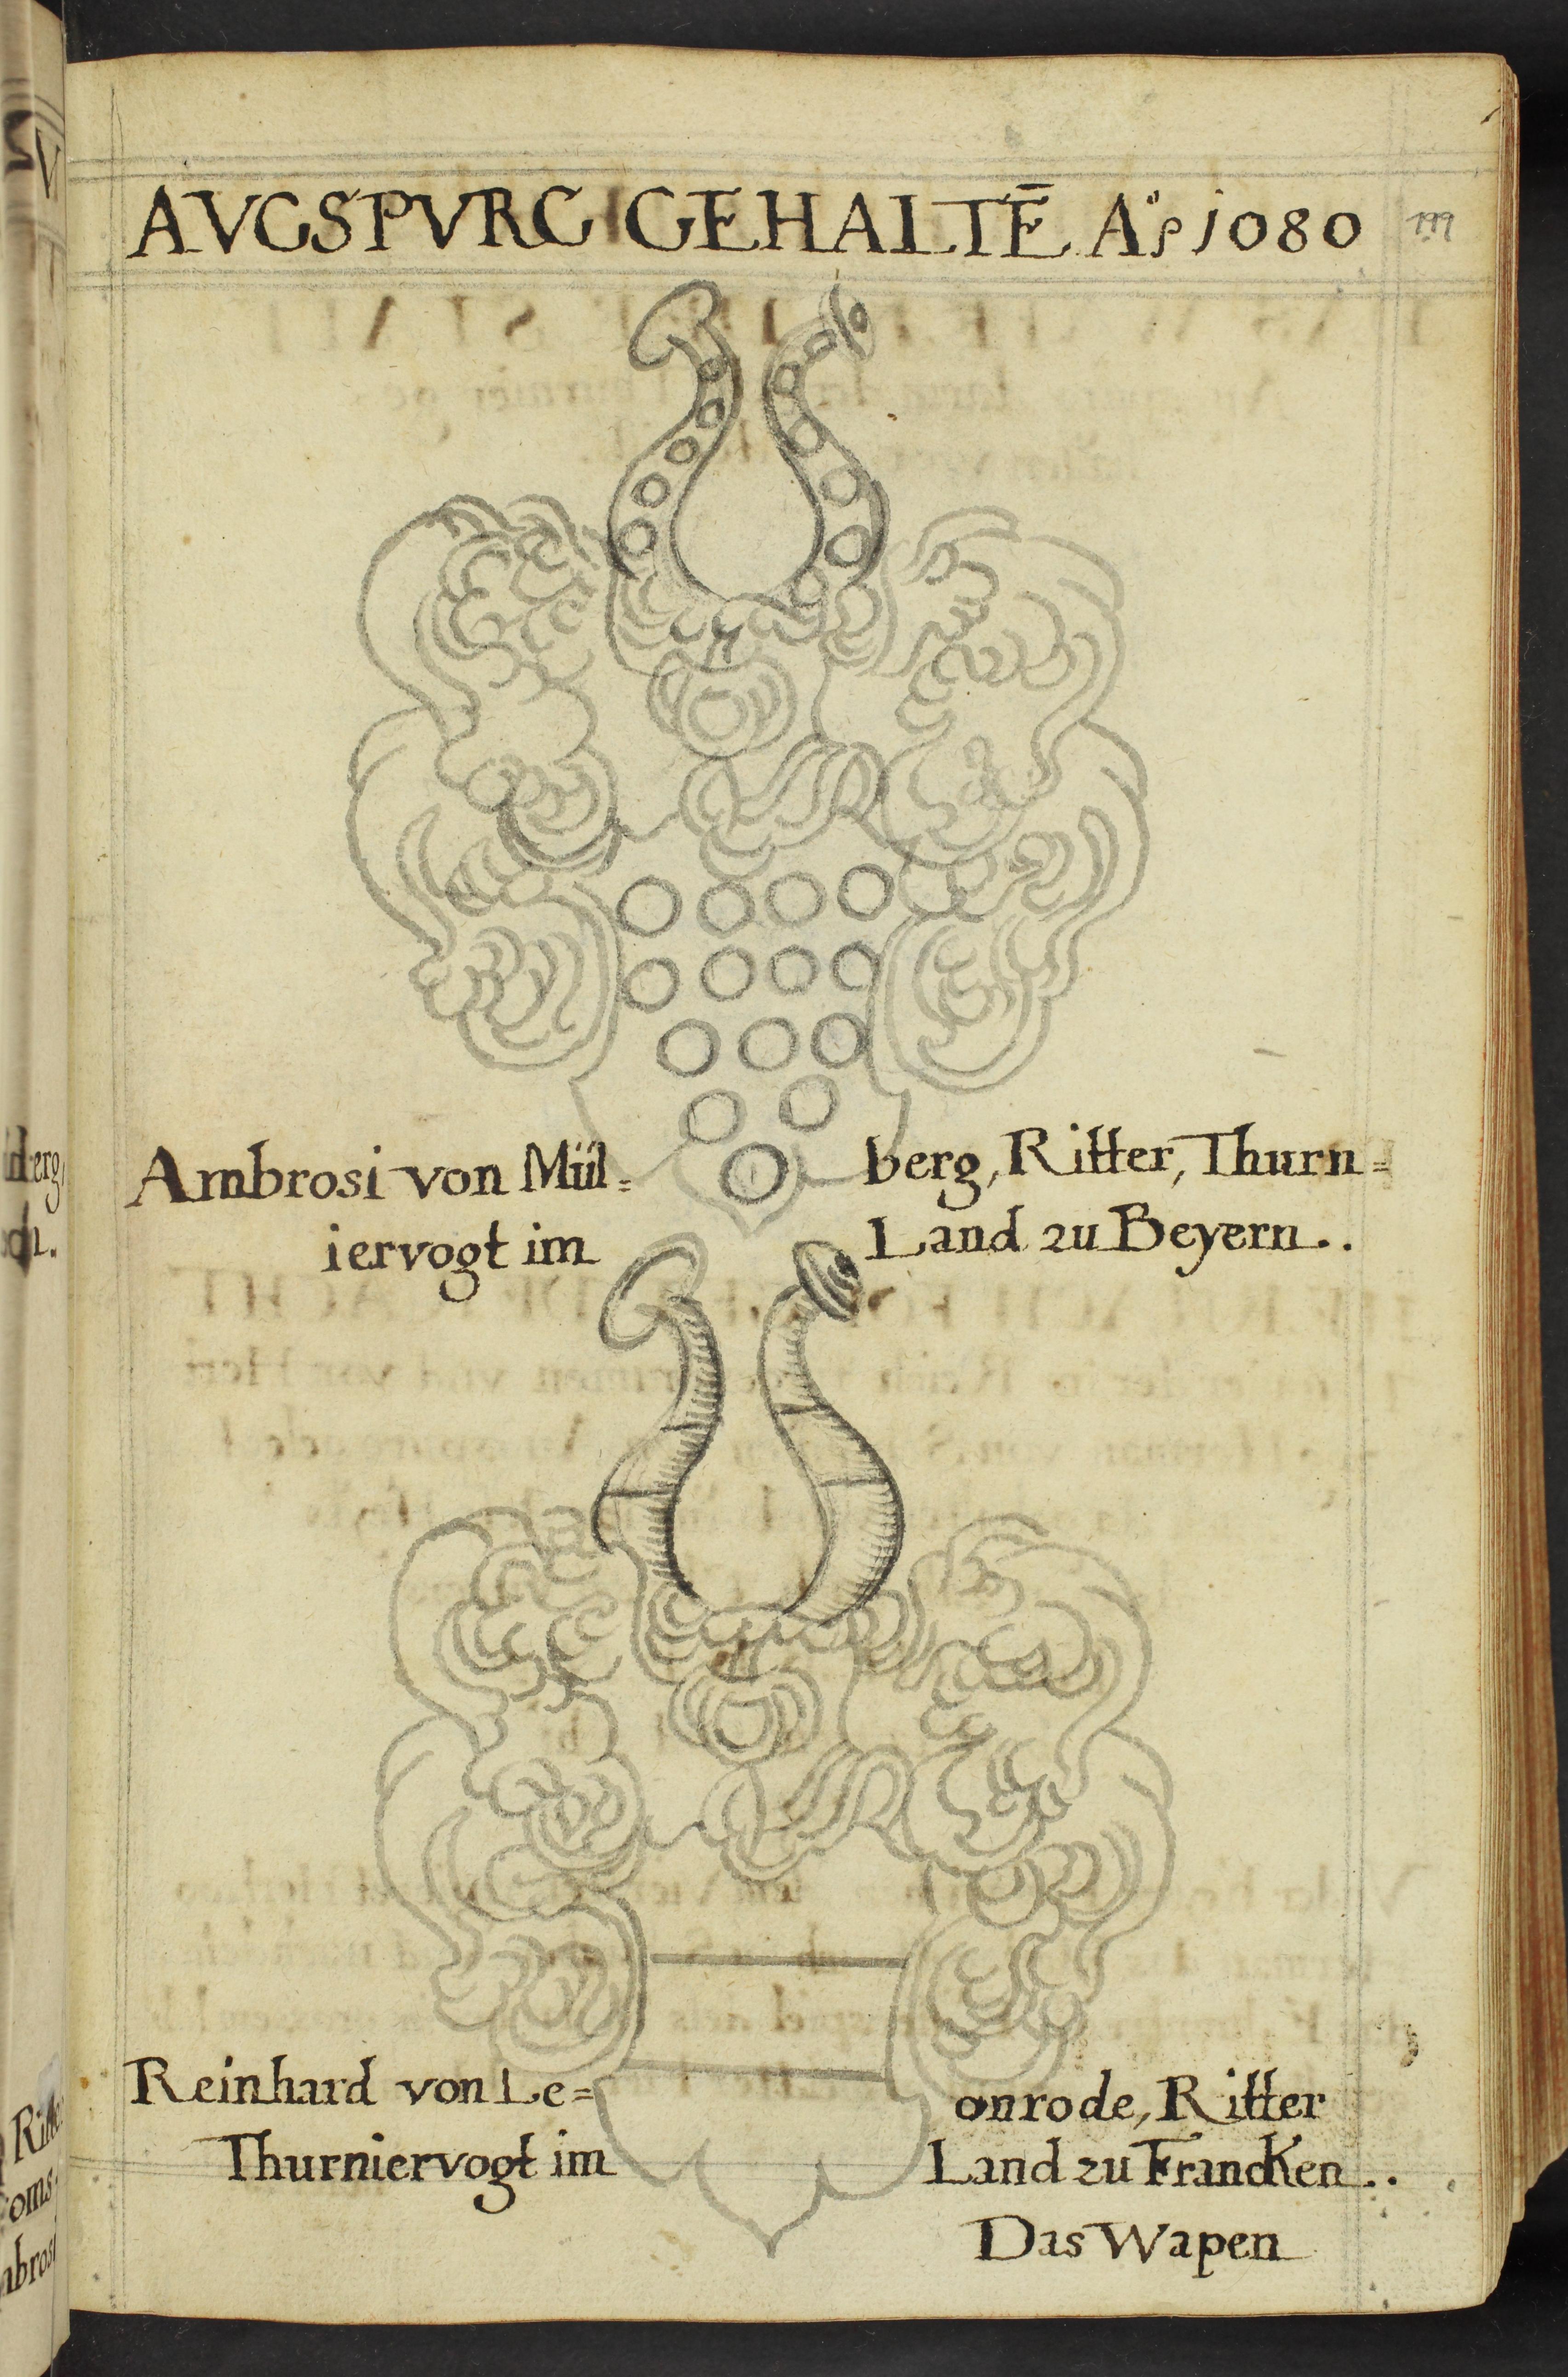 AVGSPVRG GEHALTĒ A°̷ 1080
Ambrosi von Mül= berg, Ritter, Thurn=
iervogt im Land zu Beyern..
Reinhard von Le= onrode, Ritter
Thurniervogt im Land zu Francken..
Das Wapen